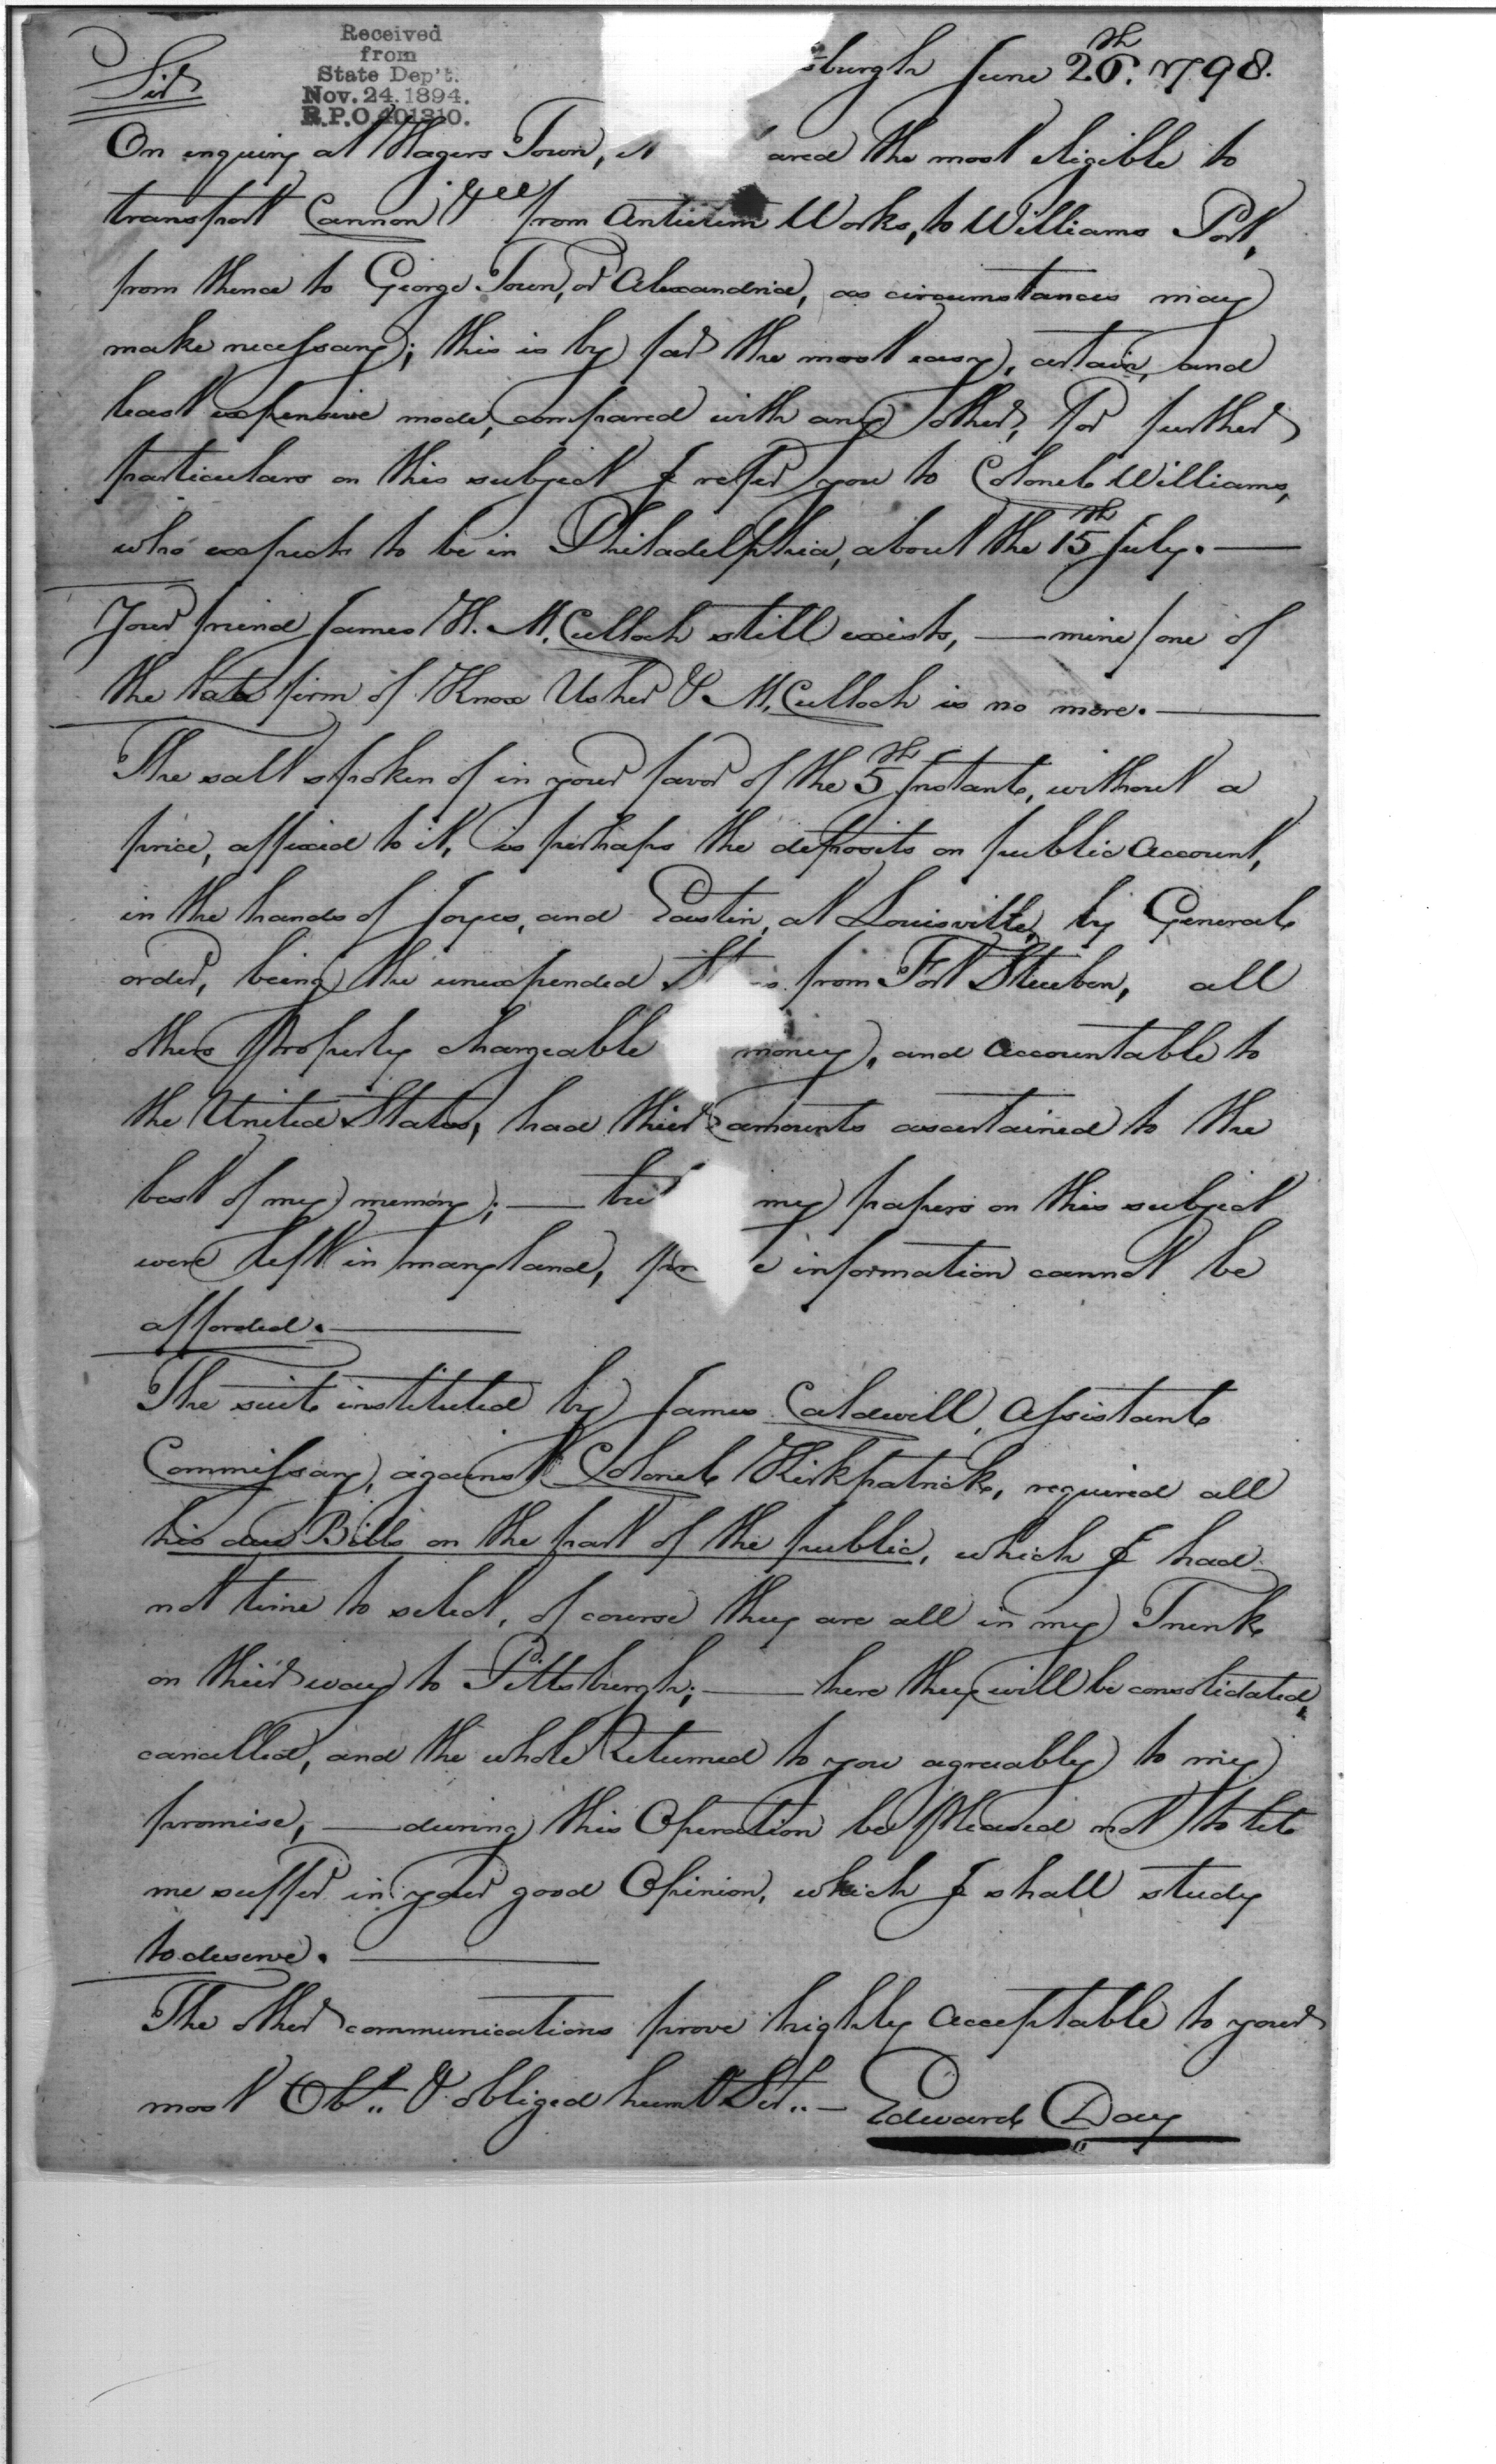 Received
from
State Dep't.
Nov. 24. 1894.
R.P.O. 401310.
sburgh June 26.th 1798.
Sir
On enquiry at Hagers Town, it ared the most eligible to
transport Cannon &ccc from Antietem Works, to Williams Port,
from thence to George Town, or Alexandria, as circumstances may
make necessary; this is by far the most easy, certain, and
least expensive mode, compared with any other, For further
particulars on this subject I refer you to Colonel Williams,
who expects to be in Philadelphia, about the 15th July. —
Your friend James H. McCulloch still exists, — mine / one of
the late firm of Knox Usher & McCulloch is no more. —
The salt spoken of in your favor of the 5th Instant, without a
price, affixed to it, is perhaps the deposits on public Account,
in the hands of Joyes, and Eastin, at Louisville, by General
order, being the unexpended St s from Fort Steuben, all
others properly chargeable money, and Accountable to
the United States, had their amounts ascertained to the
best of my memory; — bu my papers on this subject
were left in Maryland, pr e information cannot be
afforded. —
The suit instituted by James Caldwell, Assistant
Commissary, against Colonel Kirkpatrick, required all
his due Bills on the part of the public, which I had
not time to select, of course they are all in my Trunk
on their way to Pittsburgh; — here they will be consolidated,
cancelled, and the whole Returned to you agreeably to my
promise, — during this Operation be Pleased not to let
me suffer in your good Opinion, which I shall study
to deserve. —
The other communications prove highly Acceptable to your
most Obt. & obliged humb Sert. — Edward Day